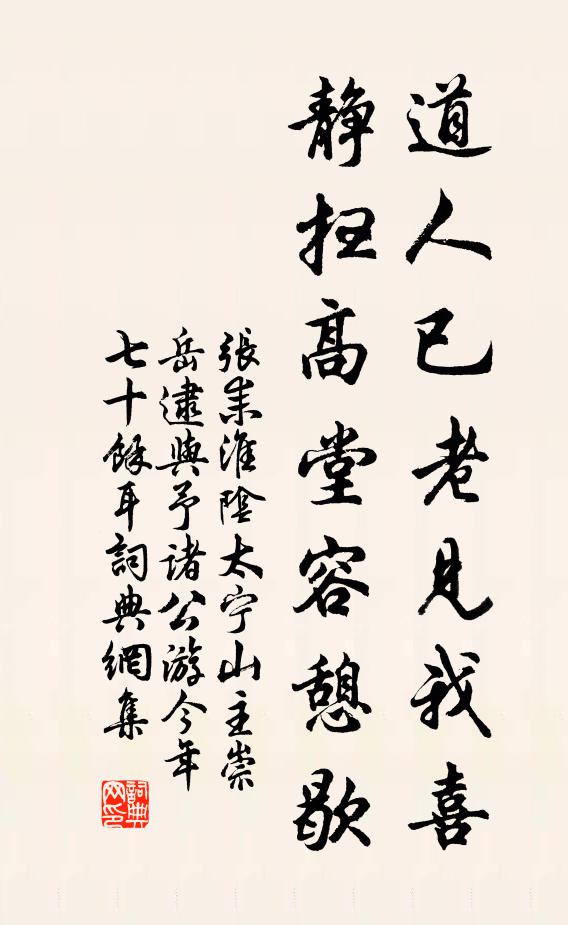 道人已老見我喜
靜扫高堂容憩歇
張耒淮陰太宁山主崇
岳逮與予诸公游今年
七十餘耳詞典網集
詞典网印